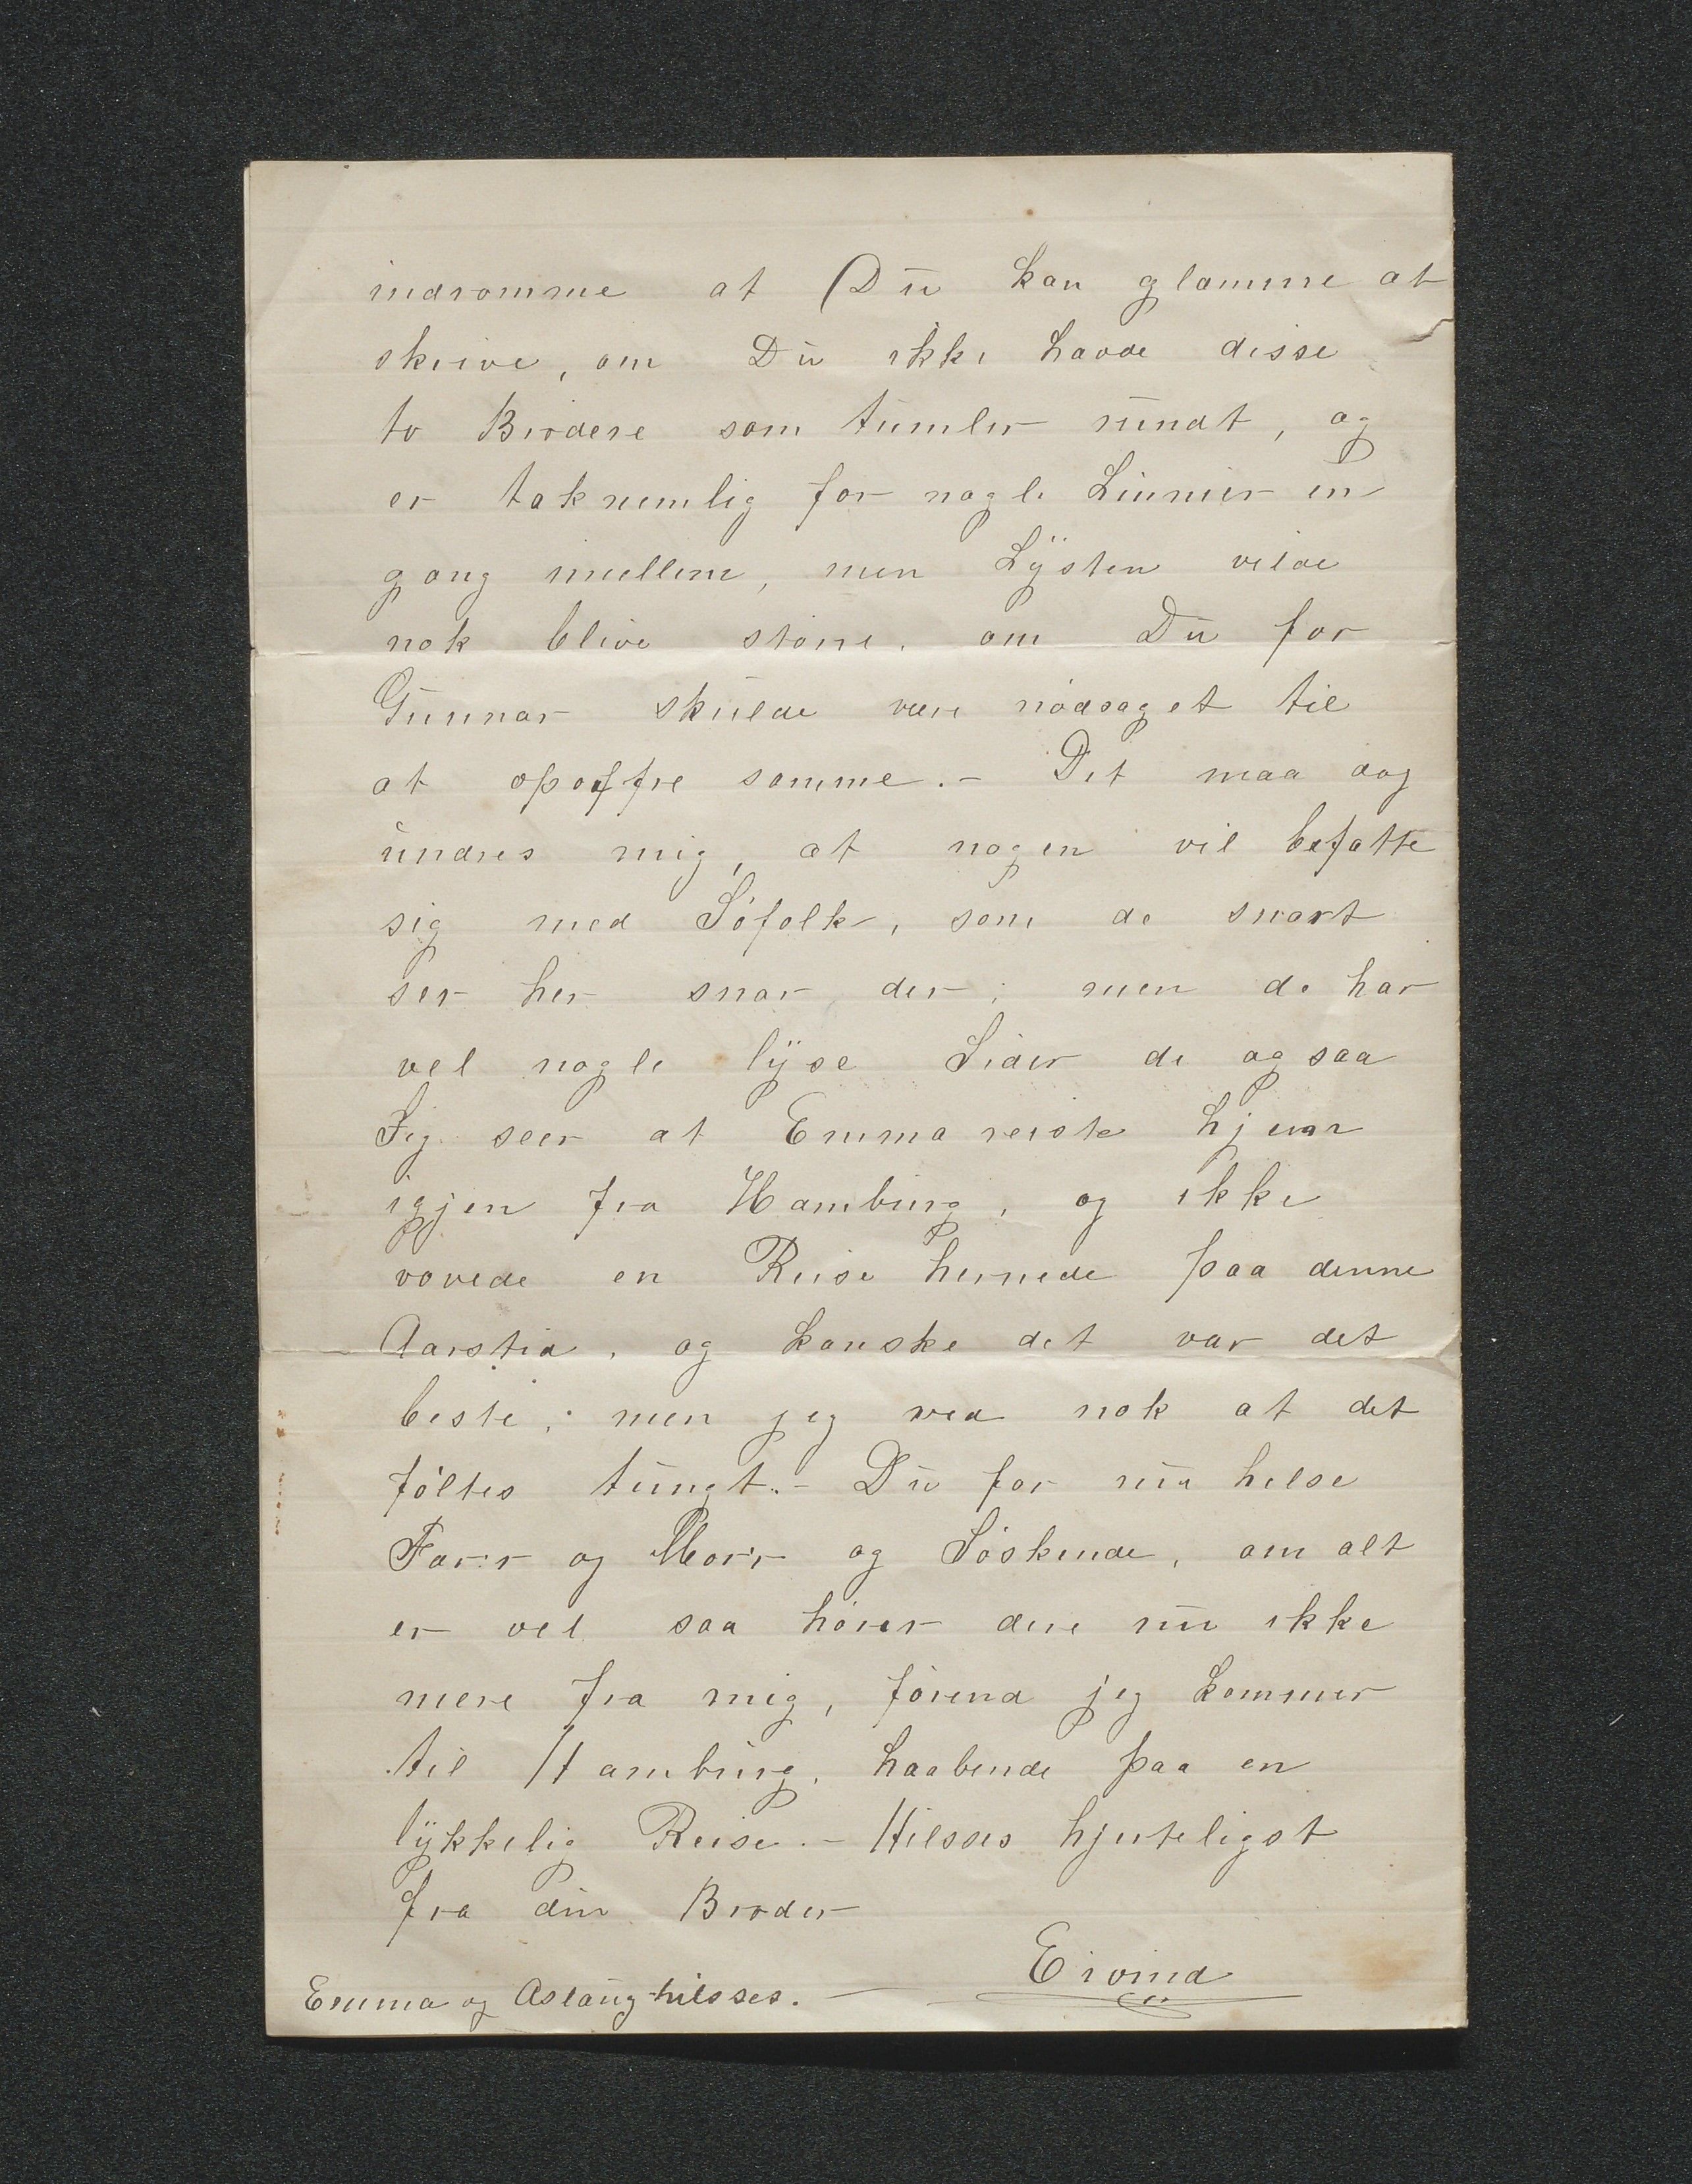 indrømme at Du kan glamme at
skrive, om Du ikke havde disse
to Brødere som tumler rundt, og
er taknemlig for nogle Linnier en
gang imellem, men Lysten vilde
nok blive større, om Du for
Gunnar skulde være nødsaget til
at opoffre samme. - Det maa dog
undres mig, at nogen vil befatte
sig med Søfolk, som de snart
ser her snar der; men de har
vel nogle lyse Sider de ogsaa
Jeg seer at Emma reiste hjem
igjen fra Hamburg, og ikke
vovede en Reise herned paa denne
Aarstid, og kanske det var det
beste; men jeg ved nok at det
føltes tungt. - Du for nu helse
Far'r og Mor'r og Søskende, om alt
er vel saa hører dere nu ikke
mere fra mig, førend jeg kommer
til Hamburg, haabende paa en
lykkelig Reise. - Hilsses hjerteligst
fra din Broder
Eivind
Emma og Aslaug hilsses. -